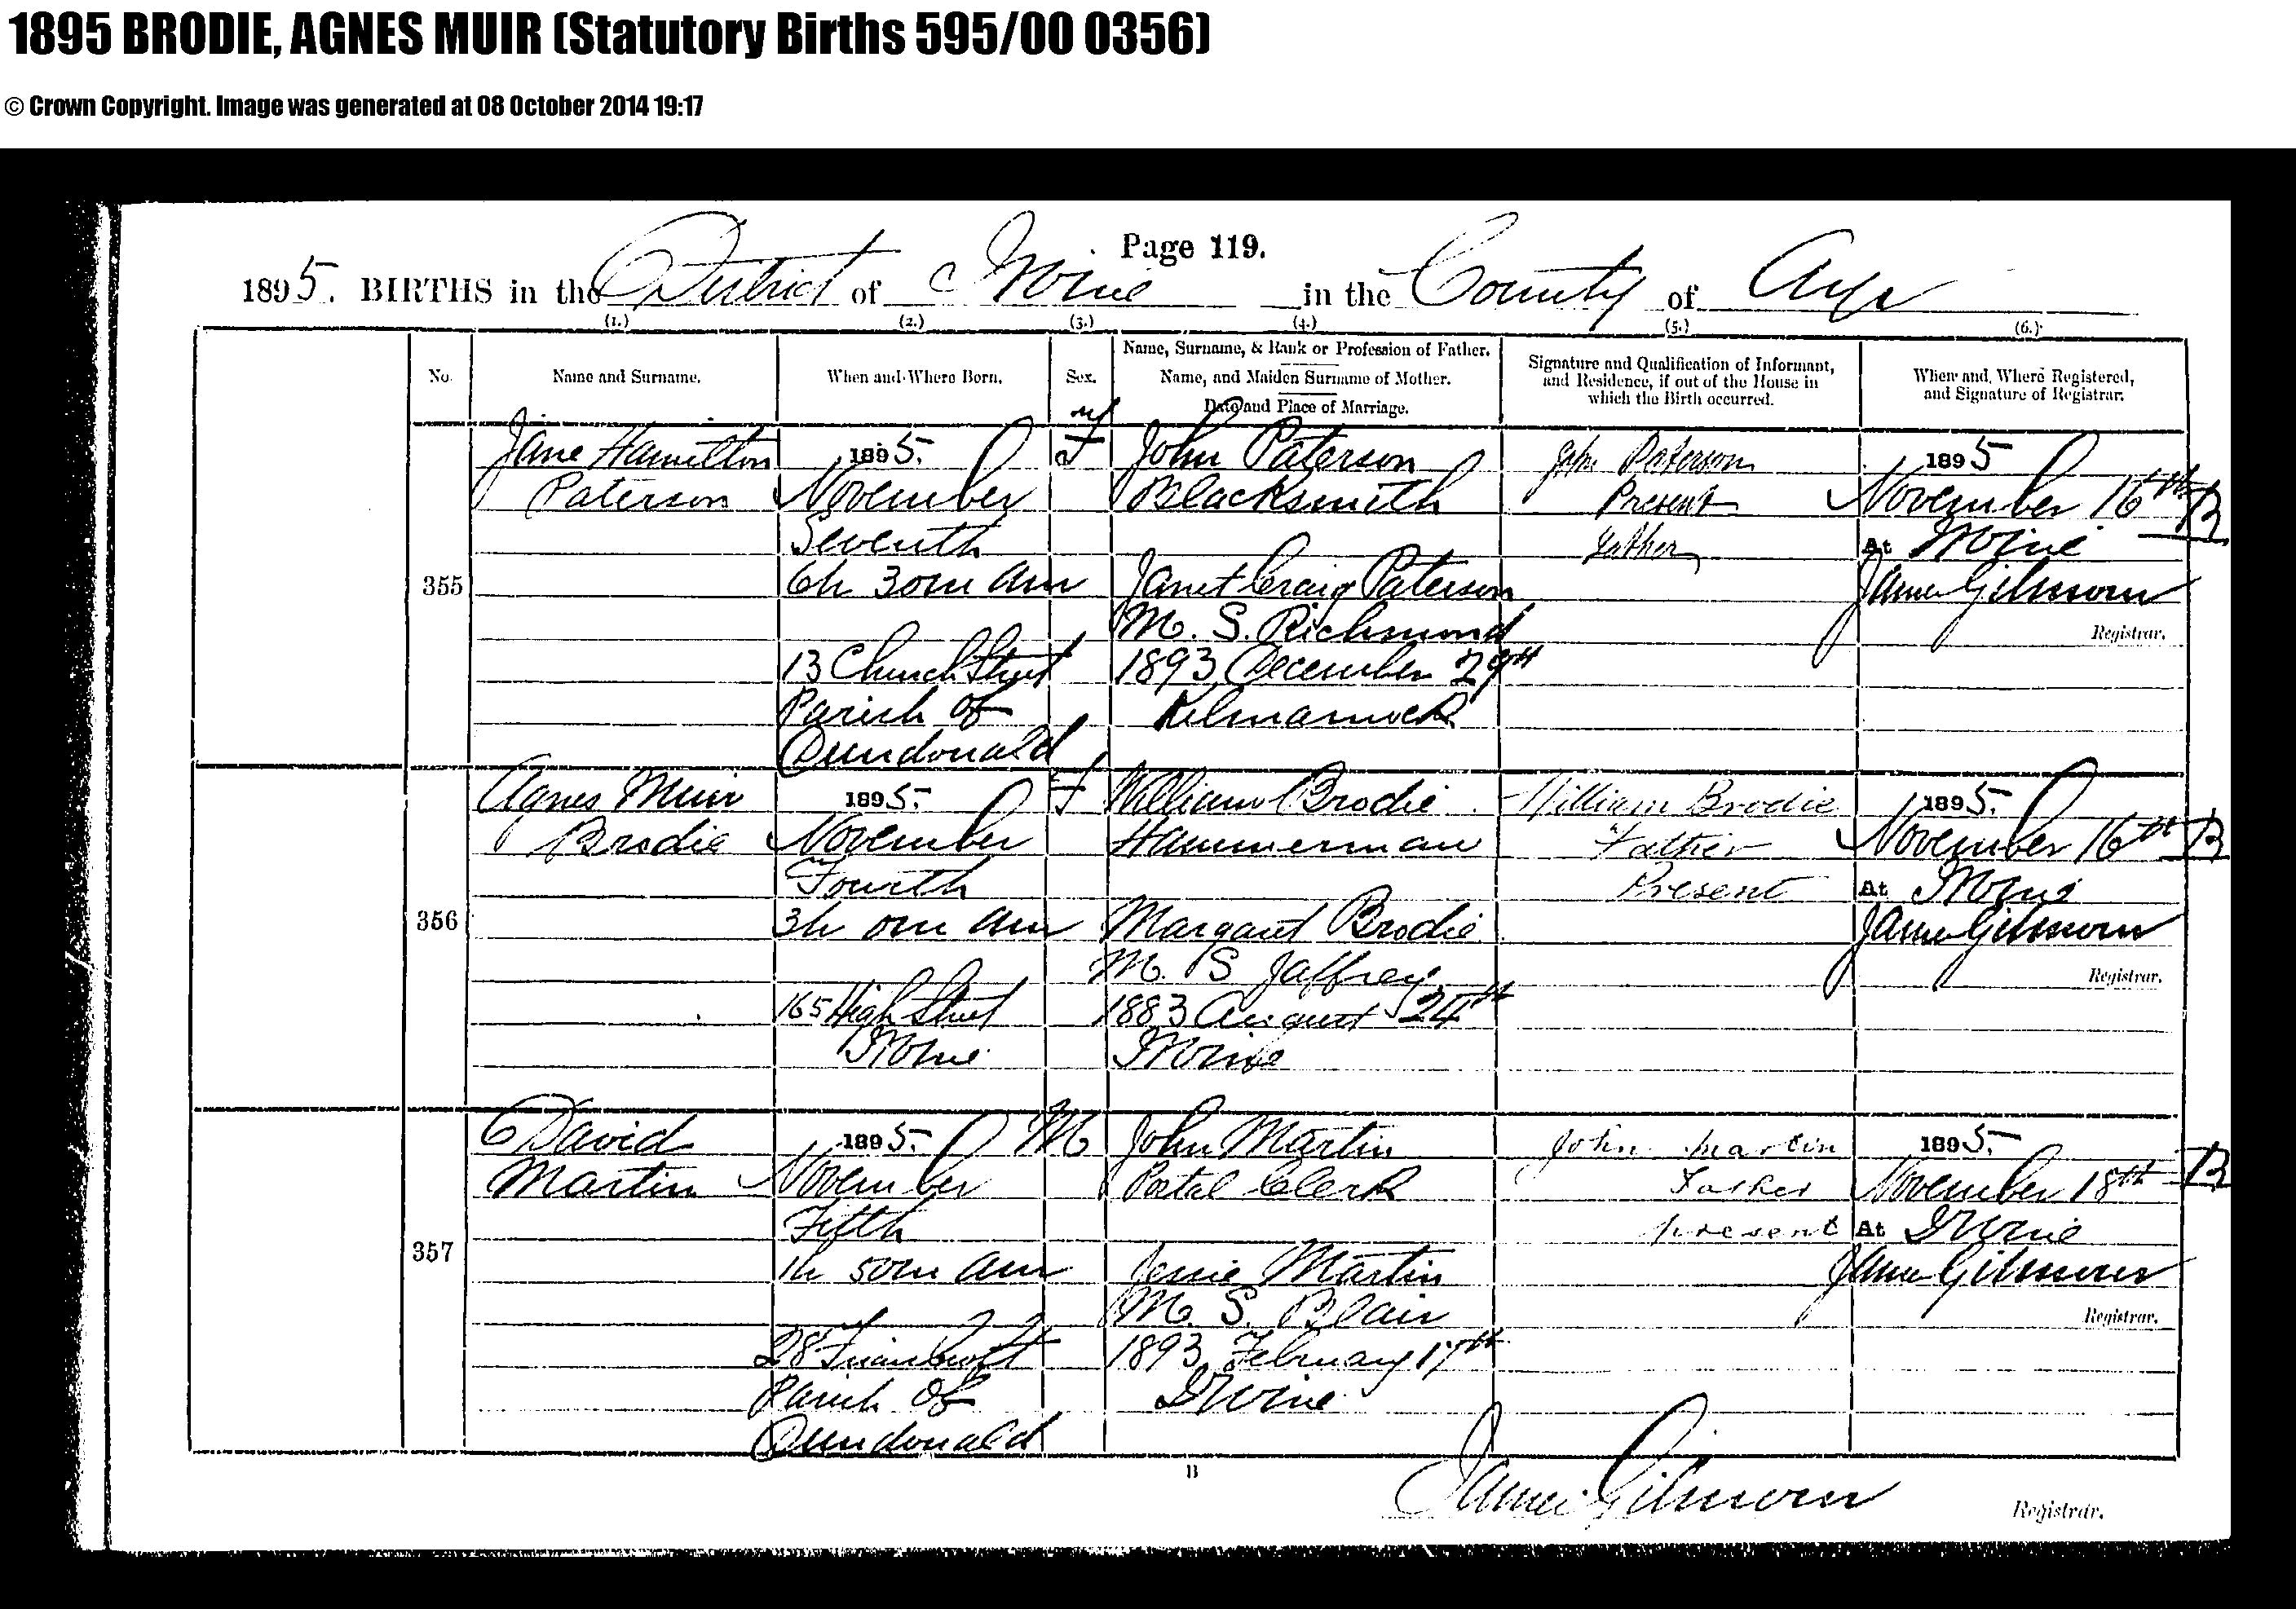 1895 BRODIE, AGNES MUIR (Statutory Births 595/00 0356)
© Crown Copyright. Image was generated at 08 October 2014 19:17
Page 119.
1895. BIRTHS in the District of Irvine in the County of Ayr
(1.) (2.) (3.) (4.) (5.) (6.)
No. Name and Surname. When and Where Born. Sex.
Name, Surname, & Rank or Profession of Father.
Name, and Maiden Surname of Mother.
Date and Place of Marriage.
Signature and Qualification of Informant,
and Residence, if out of the House in
which the Birth occurred.
When and Where Registered,
and Signature of Registrar.
355
Jane Hamilton
Paterson
1895.
November
Seventh
6h 30m am
13 Church Street
Parish of
Dundonald
F
John Paterson
Blacksmith
Janet Craig Paterson
M. S. Richmond
1893 December 29th
Kilmarnock
John Paterson
Present
Father
1895
November 16th
At Irvine
James Gilmour
Registrar.
356
Agnes Muir
Brodie
1895.
November
Fourth
3h 0m am
165 High Street
Irvine
F
William Brodie
Hammerman
Margaret Brodie
M. S Jaffrey
1883 August 24th
Irvine
William Brodie
Father
Present
1895.
November 16th
At Irvine
James Gilmour
Registrar.
357
David
Martin
1895.
November
Fifth
1h 50m am
28
Parish of
Dundonald
M
John Martin
Postal Clerk
Jessie Martin
M. S. Blair
1893 February 17th
Irvine
John Martin
Father
present
1895.
November 18th
At Irvine
James Gilmour
Registrar.
B
James Gilmour
Registrar.